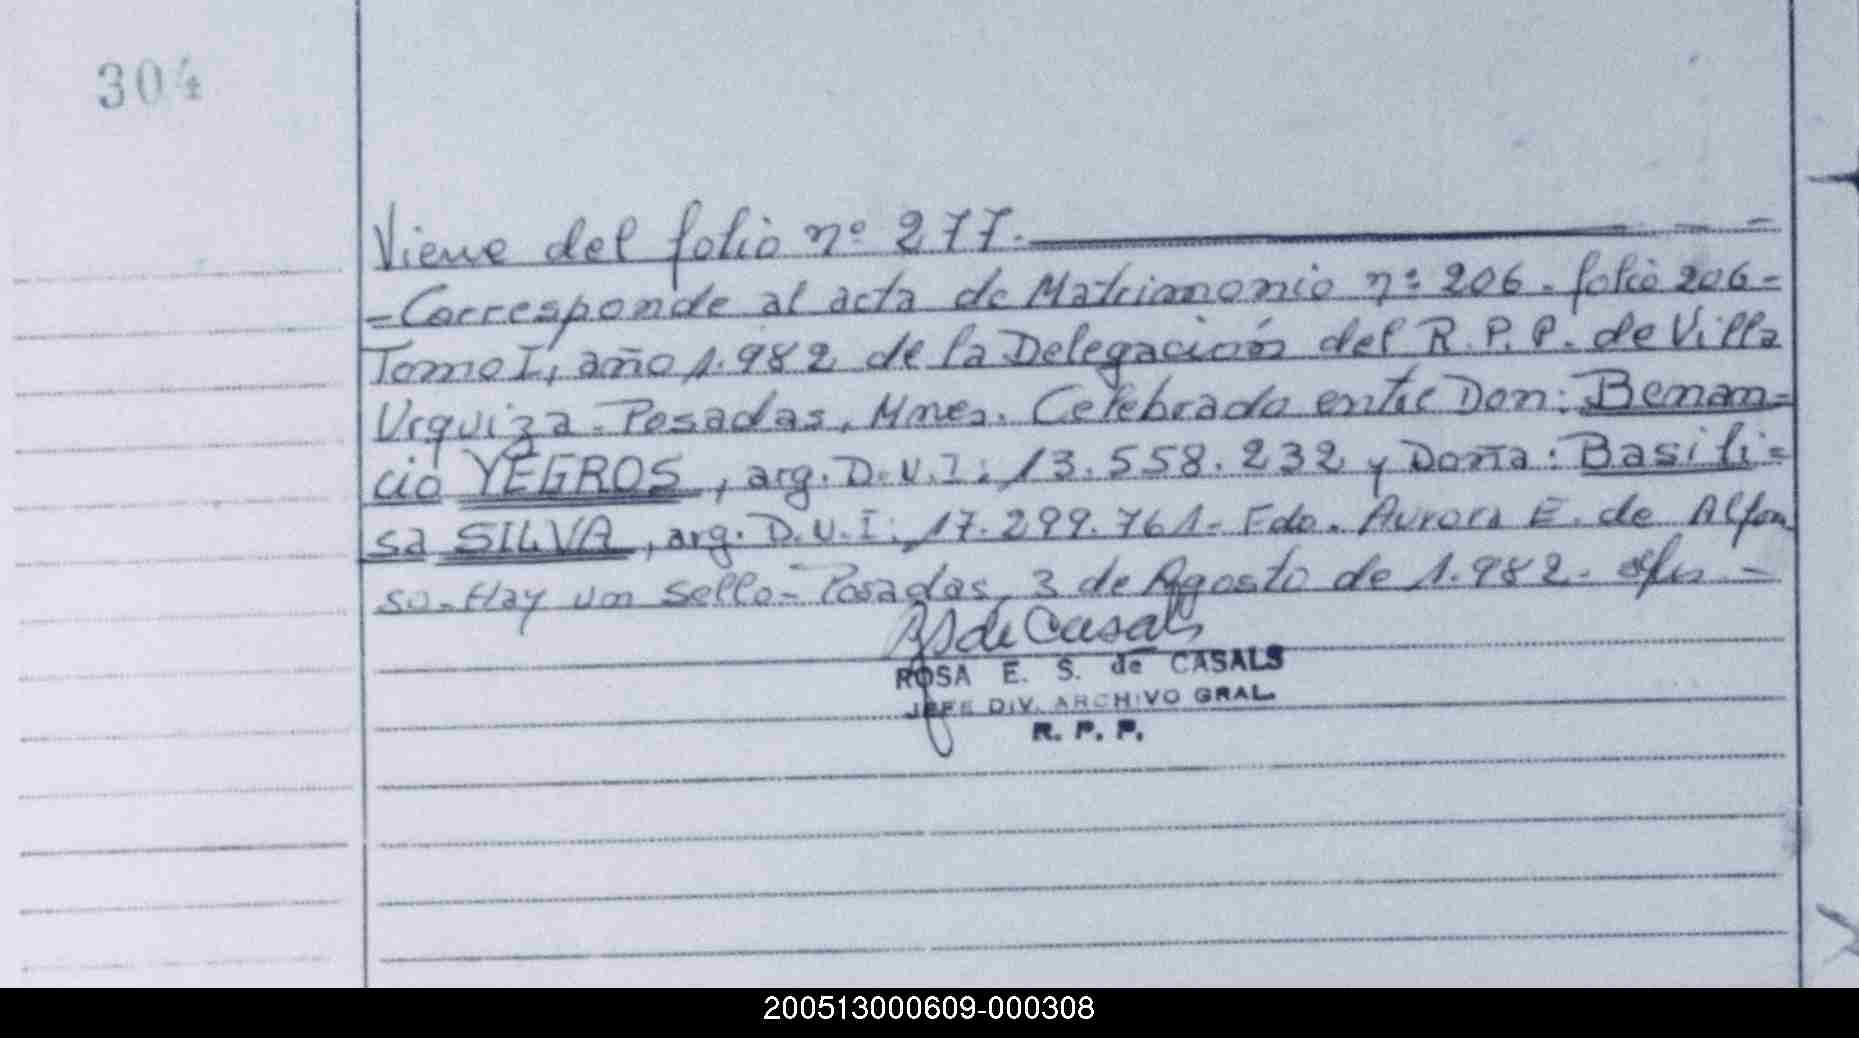 304
Viene del folio nº 277.
- Corresponde al acta de Matrimonio nº 206 - folio 206 -
Tomo I, año 1.982 de la Delegación del R.P.P. de Villa
Urquiza - Posadas, Mnes. Celebrado entre Don: Benan=
cio YEGROS, arg. D.N.I: 13.558.232 y Doña: Basili=
sa SILVA, arg. D.N.I: 17.299.761 - Fdo. Aurora E. de Alfon
so - Hay un sello - Posadas, 3 de Agosto de 1.982 -
RS de Casals
ROSA E. S. de CASALS
JEFE DIV. ARCHIVO GRAL.
R. P. P.
200513000609-000308